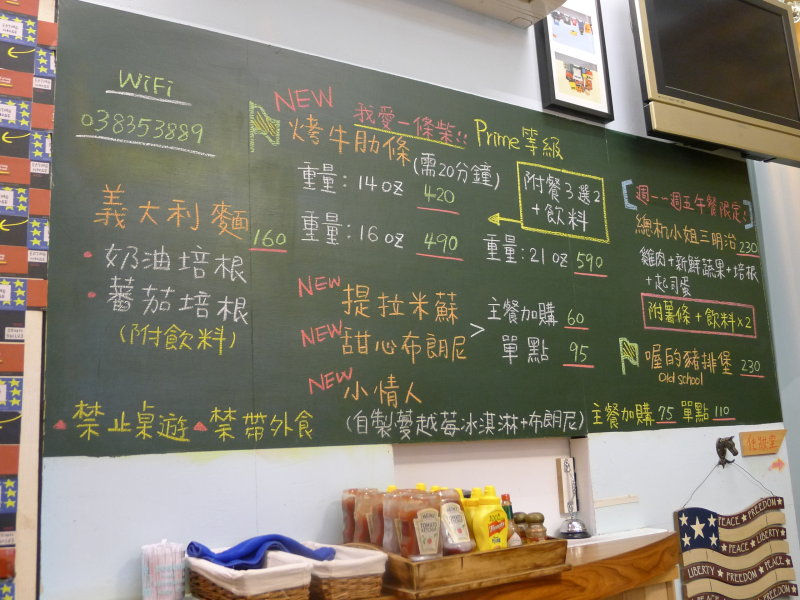 WiFi
038353889
義大利麵 160
奶油培根
蕃茄培根
(附飲料)
NEW
我愛一條柴!!
烤牛肋條(需20分鐘)
Prime等級
重量:14oz 420
重量:16oz 490
重量:21oz 590
附餐3選2
+飲料
NEW 提拉米蘇
NEW 甜心布朗尼
> 主餐加購 60
單點 95
NEW 小情人
(自製蔓越莓冰淇淋+布朗尼)
主餐加購 75 單點 110
週一~週五午餐限定:
總杭小姐三明治 230
雞肉+新鮮蔬果+培根
+起司蛋
附薯條+飲料x2
喔的豬排堡 230
Old school
禁止桌遊 禁帶外食
化妝室
HEINZ
TOMATO
PEACE FREEDOM
PEACE
LIBERTY FREEDOM PEACE
LIBERTY
PEACE FREEDOM